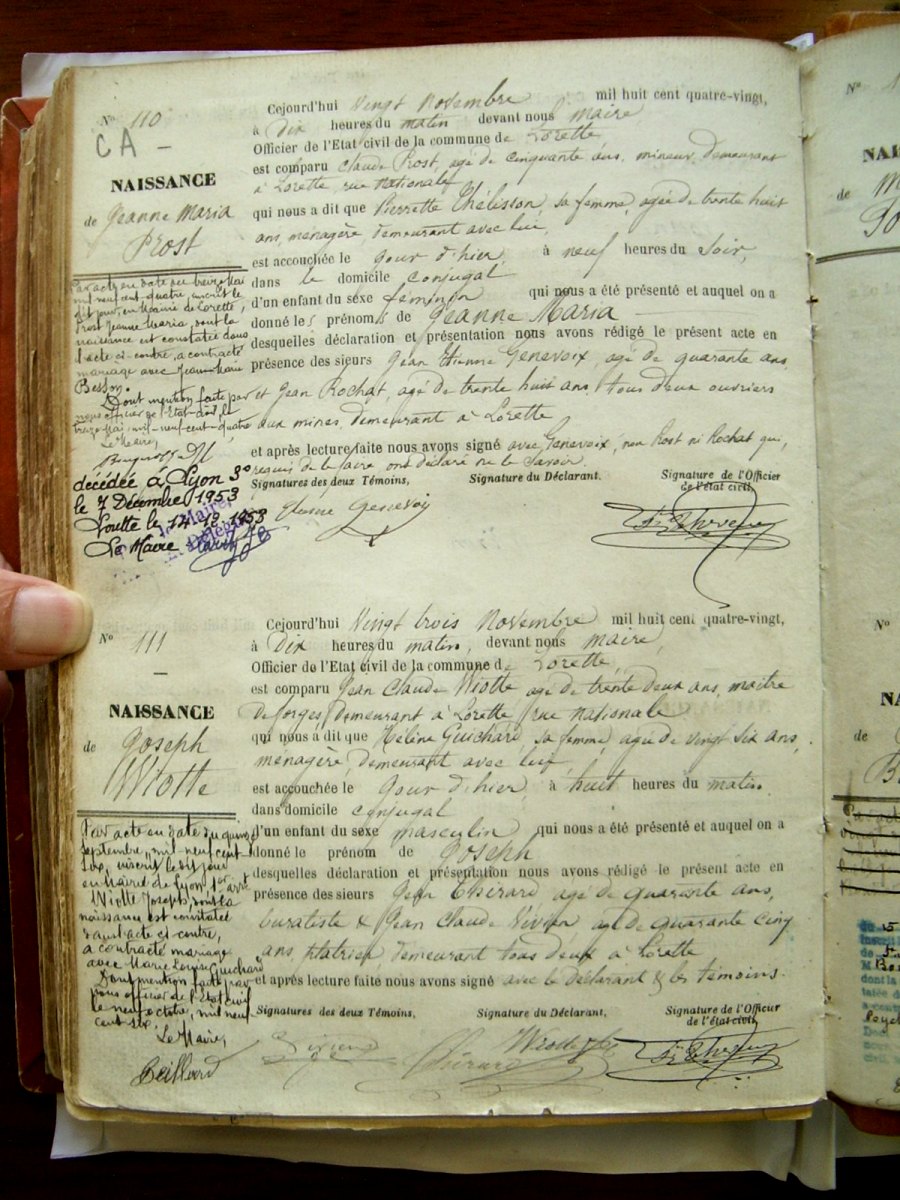 Nº 110
CA –
NAISSANCE
de Jeanne Maria
Prost
Par acte en date du treize Mai
mil neuf cent quatre, inscrit le
dit jour, en Mairie de Lorette,
Prost Jeanne Maria, dont la
naissance est constatée dans
l'acte ci-contre, a contracté
mariage avec Jean Marie
Besson.
Dont mention faite par
nous officier de l'Etat-civil, le
treize Mai mil neuf cent quatre
Le Maire,
décédée à Lyon 3e
le 7 Décembre 1953
Lorette le 14.12.1953
Le Maire
Cejourd'hui vingt Novembre mil huit cent quatre-vingt,
à Dix heures du matin devant nous maire
Officier de l'Etat civil de la commune de Lorette
est comparu Claude Prost, âgé de cinquante ans, mineur, demeurant
à Lorette, rue Nationale
qui nous a dit que Pierrette Thélisson, sa femme, agée de trente huit
ans, ménagère demeurant avec lui,
est accouchée le Jour d'hier, à neuf heures du Soir,
dans le domicile conjugal
d'un enfant du sexe feminin qui nous a été présenté et auquel on a
donné les prénoms de Jeanne Maria —
desquelles déclaration et présentation nous avons rédigé le présent acte en
présence des sieurs Jean Etienne Genevoix, agé de quarante ans,
et Jean Rochat, agé de trente huit ans, tous deux ouvriers
aux mines, demeurant à Lorette
et après lecture faite nous avons signé avec Genevoix, non Prost ni Rochat qui,
requis de le faire ont déclaré ne le Savoir.
Signatures des deux Témoins, Signature du Déclarant, Signature de l'Officier
de l'état civil,
Etienne Genevoix
Nº 111
–
NAISSANCE
de Joseph
Wiotte
Par acte en date du quinze
Septembre, mil neuf cent
six, inscrit le dit jour
en Mairie de Lyon, 1er arrt
Wiotte Joseph, dont la
naissance est constatée
dans l'acte ci contre,
a contracté mariage
avec Marie Louise Guichard
Dont mention faite par
nous officier de l'Etat civil
le neuf octobre, mil neuf
cent six.
Le Maire,
Cejourd'hui Vingt trois Novembre mil huit cent quatre-vingt,
à Dix heures du matin, devant nous maire
Officier de l'Etat civil de la commune de Lorette,
est comparu Jean Claude Wiotte agé de trente deux ans, maitre
de forges, demeurant à Lorette, rue Nationale
qui nous a dit que Hélène Guichard, sa femme, agée de vingt six ans,
ménagère, demeurant avec lui,
est accouchée le Jour d'hier, à huit heures du matin.
dans domicile conjugal
d'un enfant du sexe masculin qui nous a été présenté et auquel on a
donné le prénom de Joseph
desquelles déclaration et présentation nous avons rédigé le présent acte en
présence des sieurs Jean agé de quarante ans,
buratiste & Jean Claude agé de quarante cinq
ans demeurant tous deux à Lorette
et après lecture faite nous avons signé avec le Déclarant & les témoins.
Signatures des deux Témoins, Signature du Déclarant, Signature de l'Officier
de l'état civil,
Wiotte